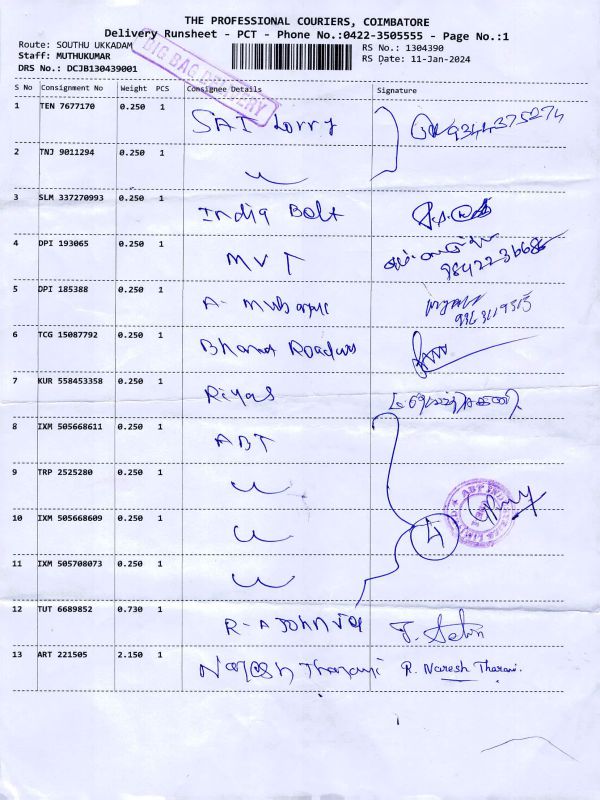 THE PROFESSIONAL COURIERS, COIMBATORE
Delivery Runsheet - PCT - Phone No.:0422-3505555 - Page No.:1
Route: SOUTHU UKKADAM
RS No.: 1304390
Staff: MUTHUKUMAR
RS Date: 11-Jan-2024
DRS No.: DCJB130439001
BIG BAG DELIVERY
S No Consignment No Weight PCS Consignee Details Signature
1 TEN 7677170 0.250 1 SAI Lorry 9344375274
2 TNJ 9011294 0.250 1
3 SLM 337270993 0.250 1 India Bolt
4 DPI 193065 0.250 1 MVT
9842236686
5 DPI 185388 0.250 1 A-
6 TCG 15087792 0.250 1 Bharat
7 KUR 558453358 0.250 1 Riyas
8 IXM 505668611 0.250 1 ABT
9 TRP 2525280 0.250 1
10 IXM 505668609 0.250 1 4
11 IXM 505708073 0.250 1
12 TUT 6689852 0.730 1 R-A
13 ART 221505 2.150 1 Naresh Tharani R. Naresh Tharani.